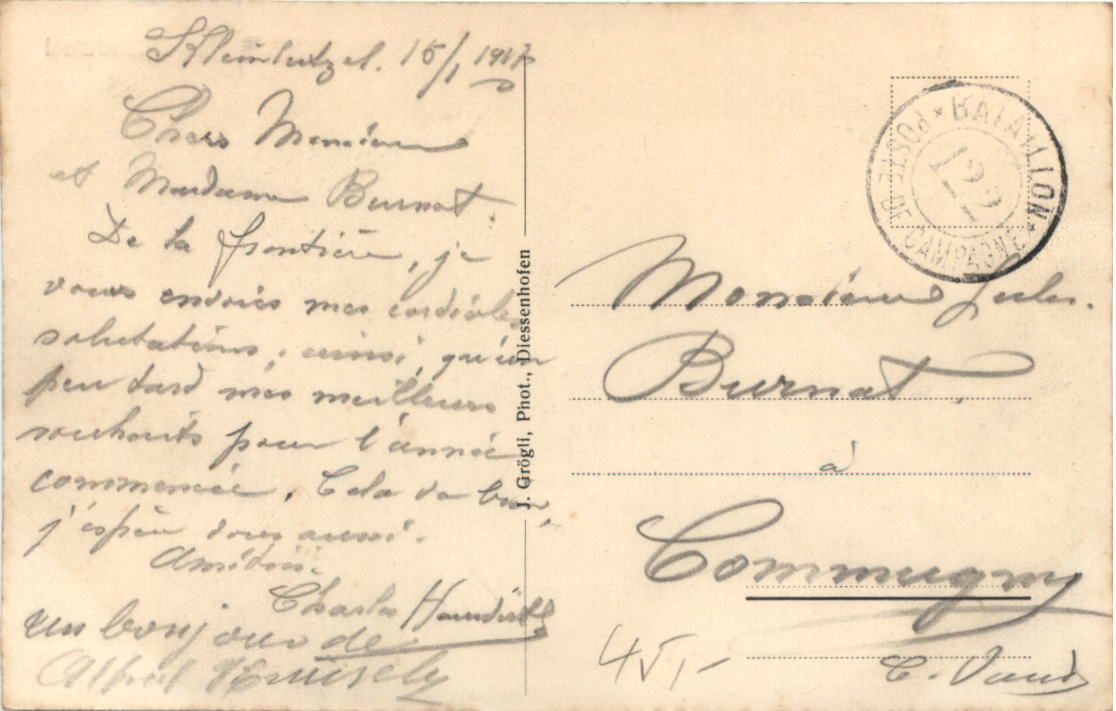 Kleinlützel. 15/1 1917
Chers Monsieur
et Madame Burnat.
De la frontière, je
vous envoies mes cordiales
salutations, ainsi, qu'un
peu tard mes meilleurs
souhaits pour l'année
commencée. Cela va bien,
j'espère vous aussi.
Amitiés.
Charles
un bonjour de
Alfred
J. Grögli, Phot., Diessenhofen
POSTE DE CAMPAGNE * BATAILLON *
122
Monsieur Jules
Burnat.
à
Commugny
C. Vaud